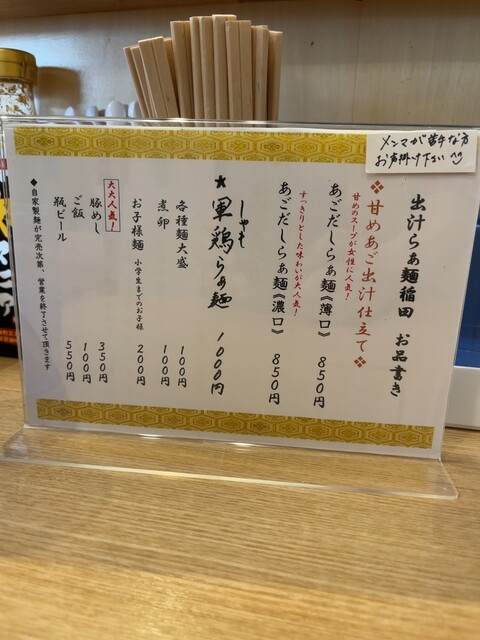 メンマが苦手な方
お声掛け下さい
出汁らぁ麺稲田 お品書き
❖甘めあご出汁仕立て❖
甘めのスープが女性に人気！
あごだしらぁ麺《薄口》 850円
すっきりとした味わいが大人気！
あごだしらぁ麺《濃口》 850円
しゃも
★軍鶏らぁ麺 1000円
各種麺大盛 100円
煮卵 100円
お子様麺 小学生までのお子様 200円
大人気！
豚めし 350円
ご飯 100円
瓶ビール 550円
◆自家製麺が完売次第、営業を終了させて頂きます